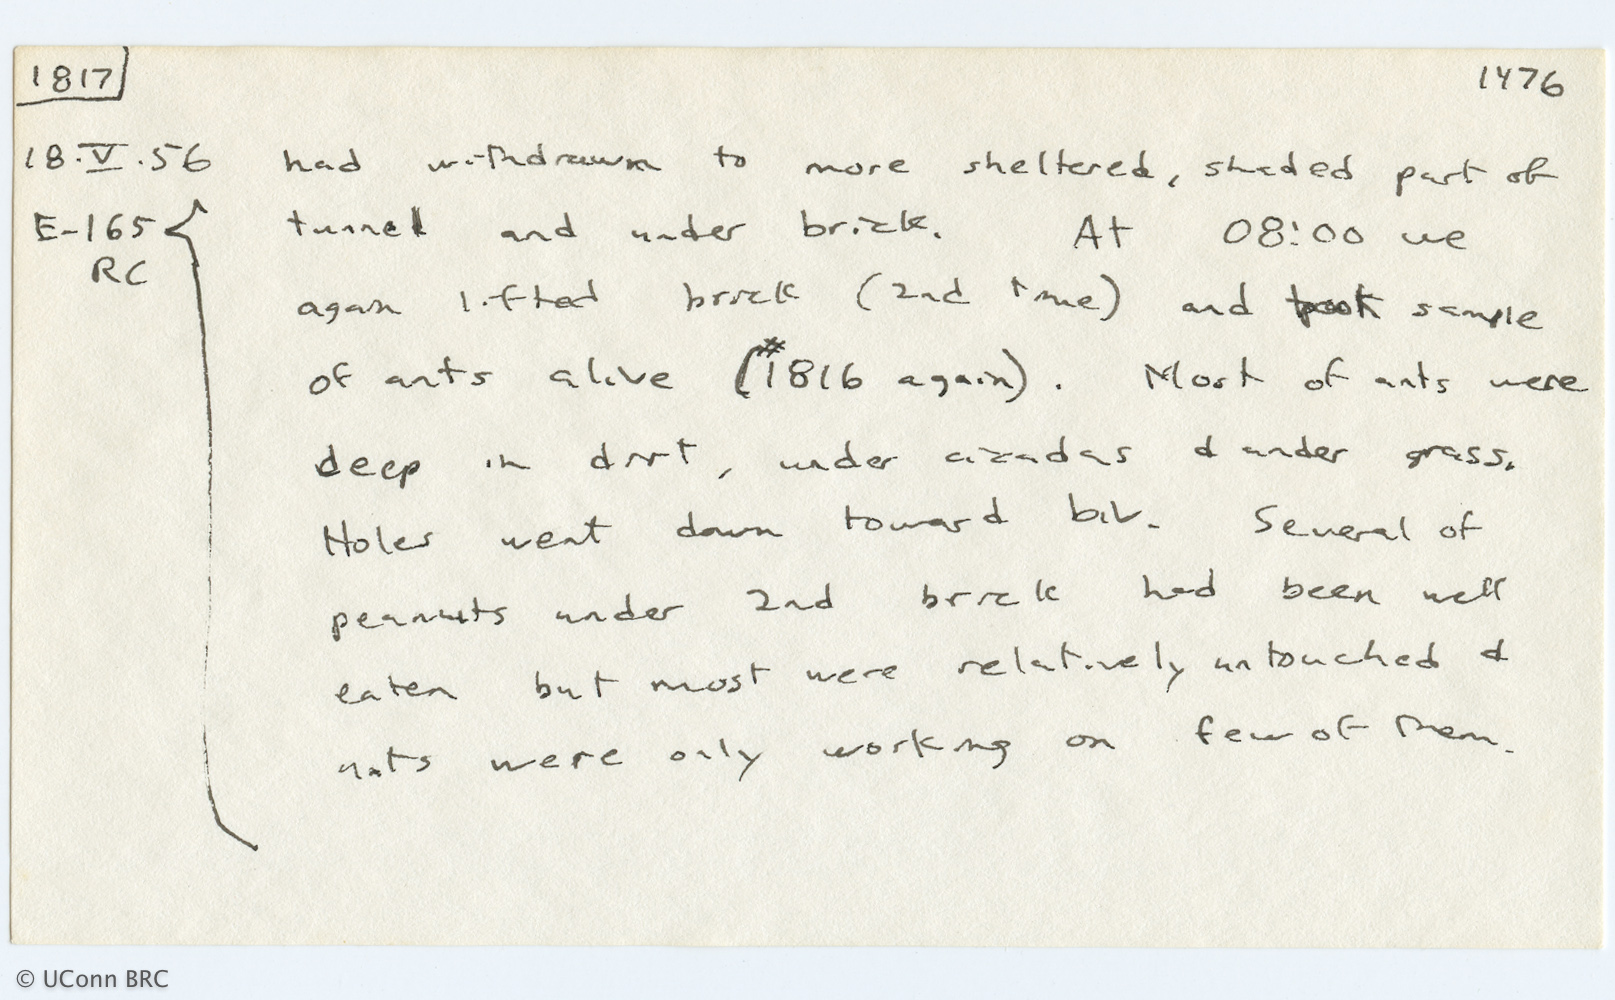 1817
1476
18.V.56 had withdrawn to more sheltered, shaded part of
E-165 tunnel and under brick. At 08:00 we
RC
again lifted brick (2nd time) and took sample
of ants alive (#1816 again). Most of ants were
deep in dirt, under cicadas & under grass.
Holes went down toward biv. Several of
peanuts under 2nd brick had been well
eaten but most were relatively untouched &
ants were only working on few of them.
© UConn BRC